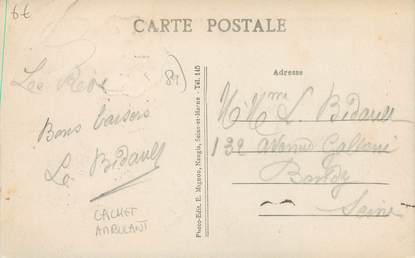 6€
CARTE POSTALE
(81)
Adresse
Bons baisers
L. Bidault
CACHET
AMBULANT
Photo-Edit. E. Mignon, Nangis, Seine-et-Marne - Tél. 145
M. Mme L. Bidault
132 Avenue Gallieni
Bondy
Seine